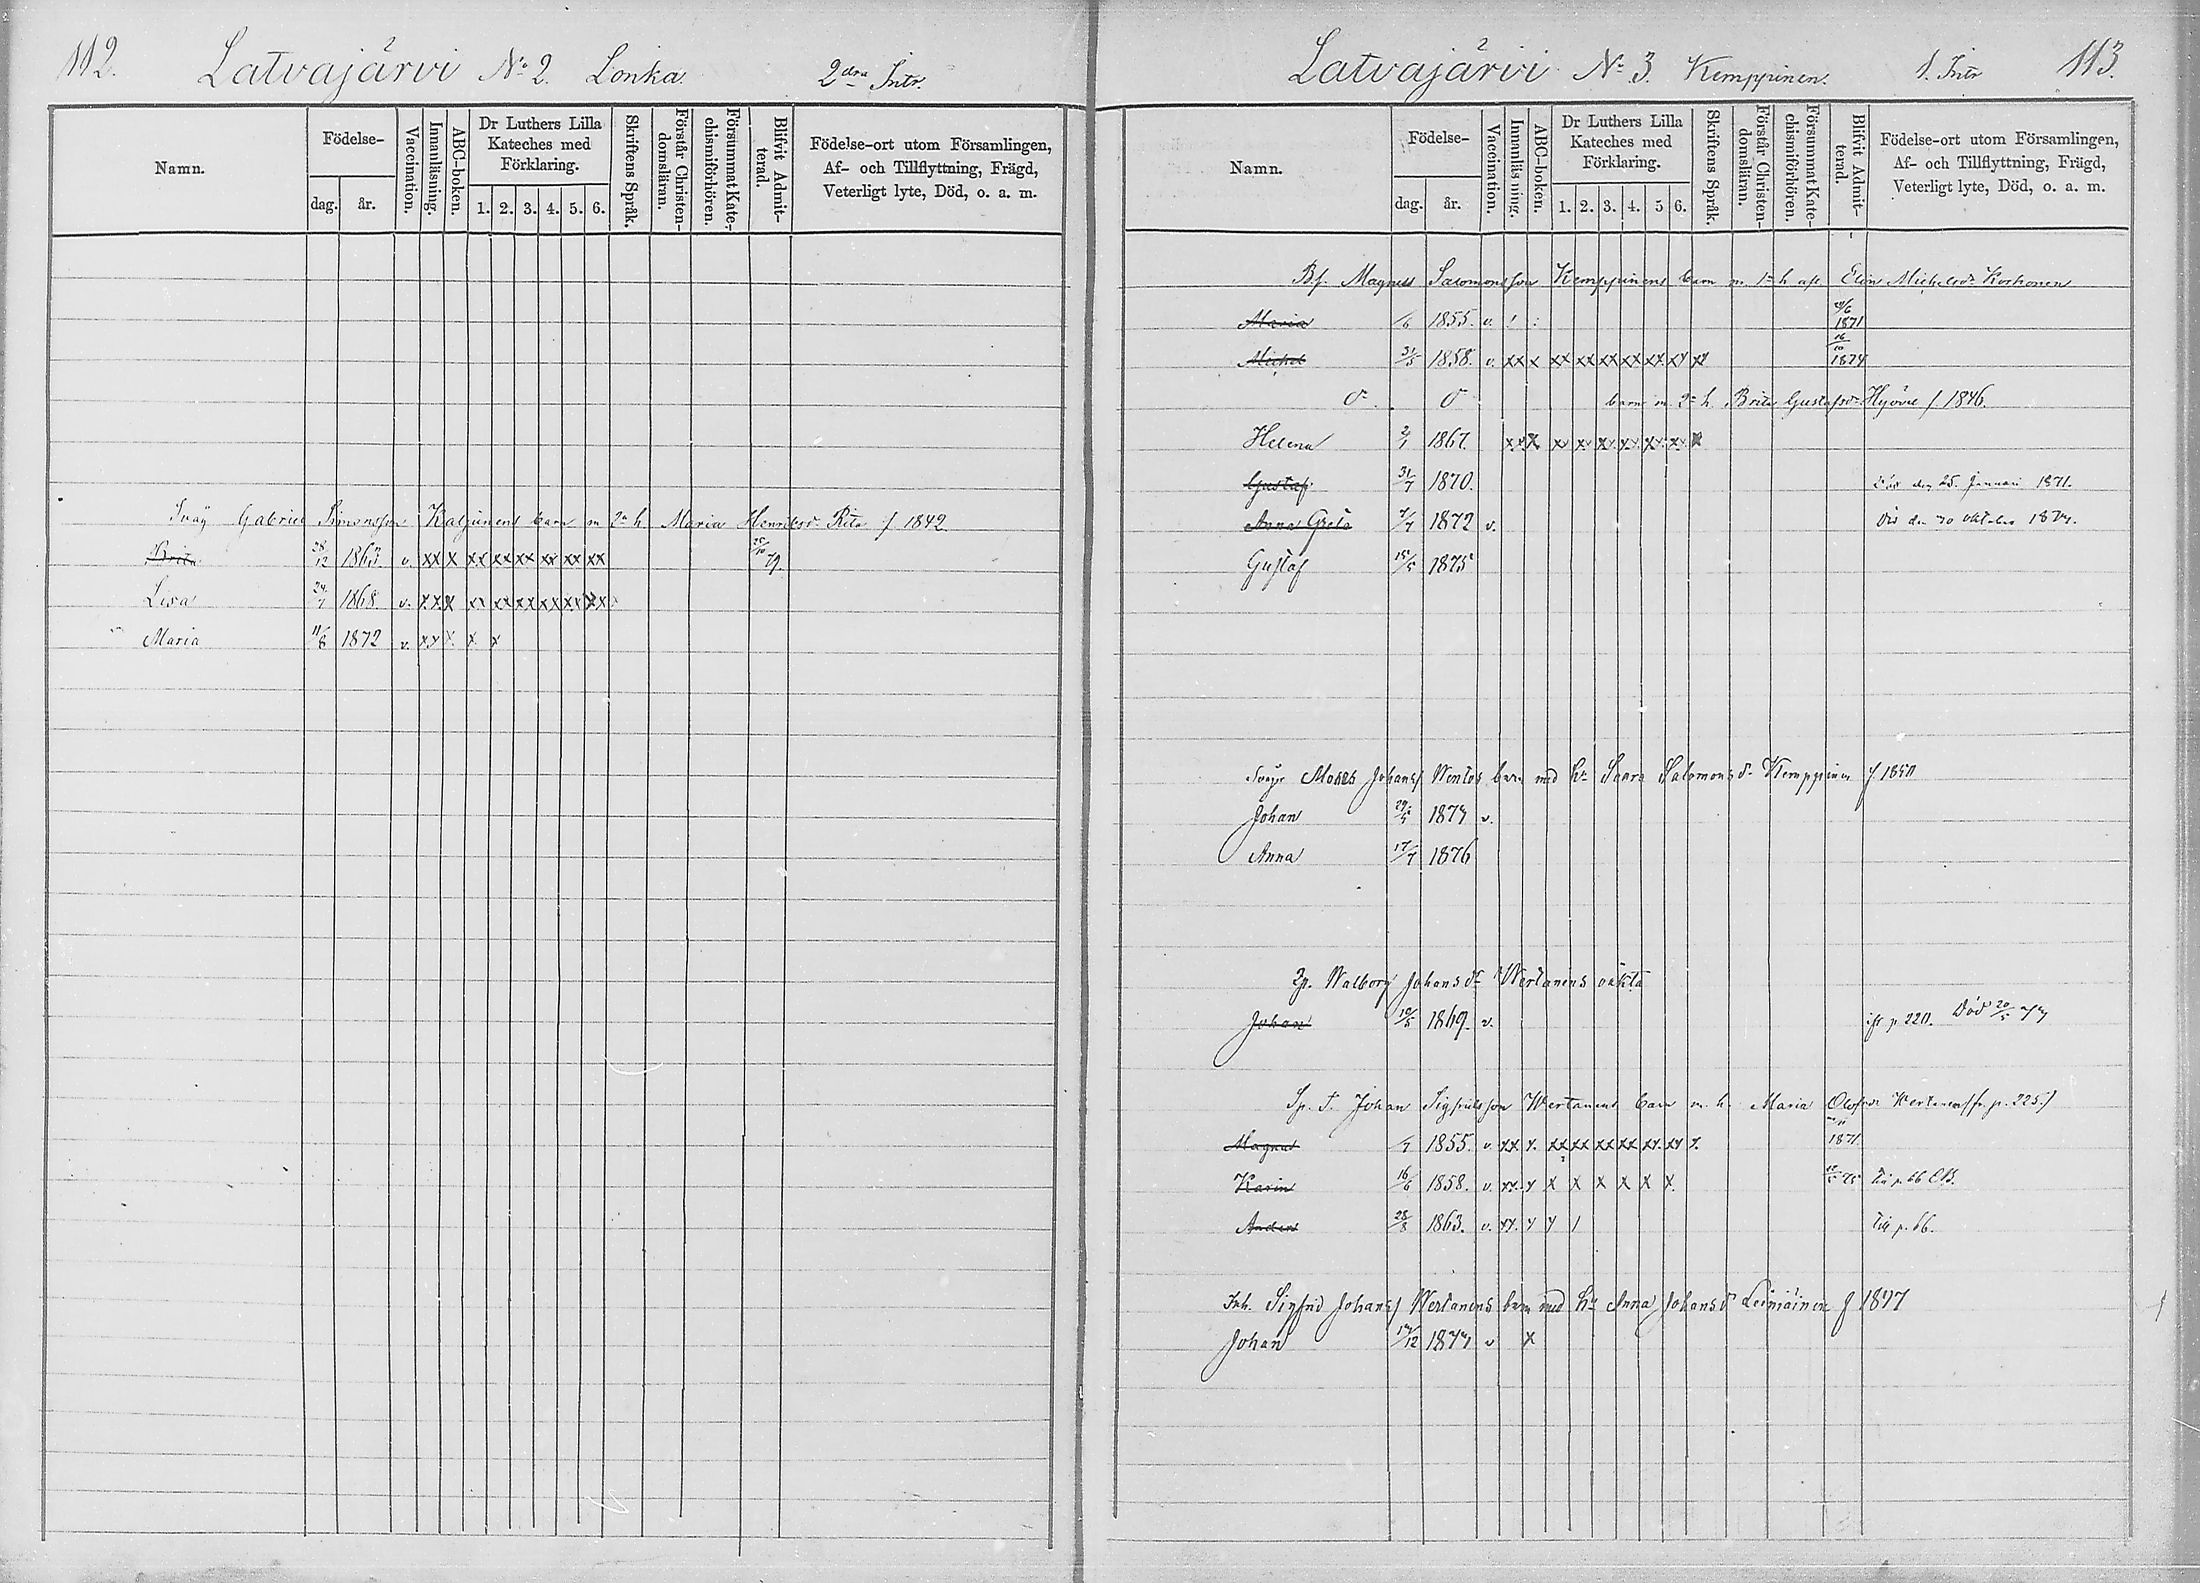 112. Latvajärvi No 2. Lonka 2dra Intr.
Namn.
Födelse-
dag. år.
Vaccination.
Innanläsning.
ABC-boken.
Dr Luthers Lilla
Kateches med
Förklaring.
1. 2. 3. 4. 5. 6.
Skriftens Språk.
Förstår Christen-
domsläran.
Försummat Kate-
chismiförhören.
Blifvit Admit-
terad.
Födelse-ort utom Församlingen,
Af- och Tillflyttning, Frägd,
Veterligt lyte, Död, o. a. m.
Gabriel Simonsson Kaljunens barn m 2n h Maria Henriksdr f 1842
Brita 28/12 1865 v. xx x xx xx xx xx xx xx
Lisa 24/1 1868 v. xx x xx xx xx xx xx xx
Maria 11/8 1872 v. xx x x x
Latvajärvi No 3. Kemppinen. 1. Intr 113.
Namn.
Födelse-
dag. år.
Vaccination.
Innanläsning.
ABC-boken.
Dr Luthers Lilla
Kateches med
Förklaring.
1. 2. 3. 4. 5 6.
Skriftens Språk.
Förstår Christen-
domsläran.
Försummat Kate-
chismiförhören.
Blifvit Admit-
terad.
Födelse-ort utom Församlingen,
Af- och Tillflyttning, Frägd,
Veterligt lyte, Död, o. a. m.
Magnus Salomonsson Kemppinens barn m 1a h afl Elin Michelsdr Korhonen
Maria /6 1855. v. 1871
Michel 31/5 1858. v. xx x xx xx xx xx xx xx xx 16/10 1874
barn m 2n h. Brita Gustafsdr Hyöni f. 1846.
Helena 2/1 1867. xx x xx xx xx xx xx xx x
Gustaf 31/7 1870. Död den 25. Januari 1871.
Anna Greta 7/7 1872 v. Död den 30 oktober 1874.
Gustaf 15/5 1875
Moses Johanss barn med hu Saara Salomonsdr Kemppinen f 1850
Johan 29/5 1874 v.
Anna 17/7 1876
Walborg Johansdr Wertanens oäkta
Johan 19/5 1869. v. p. 220. Död 20/5
Sp. T. Johan Sigfridsson Wertanens barn m. h. Maria Olofsdr Wertanen fr. p. 225.)
Magnus /7 1855. v. xx x. xx xx xx xx xx xx x. 1871.
Karin 16/6 1858. v. xx. x x x x x x x. 75 Till p. 66
Anders 28/8 1863. v. xx. x x / Till p. 66.
Inh. Sigfrid Johanss Wertanens barn med hu Anna Johansdr Leinäinen f 1847
Johan 14/12 1874 v x